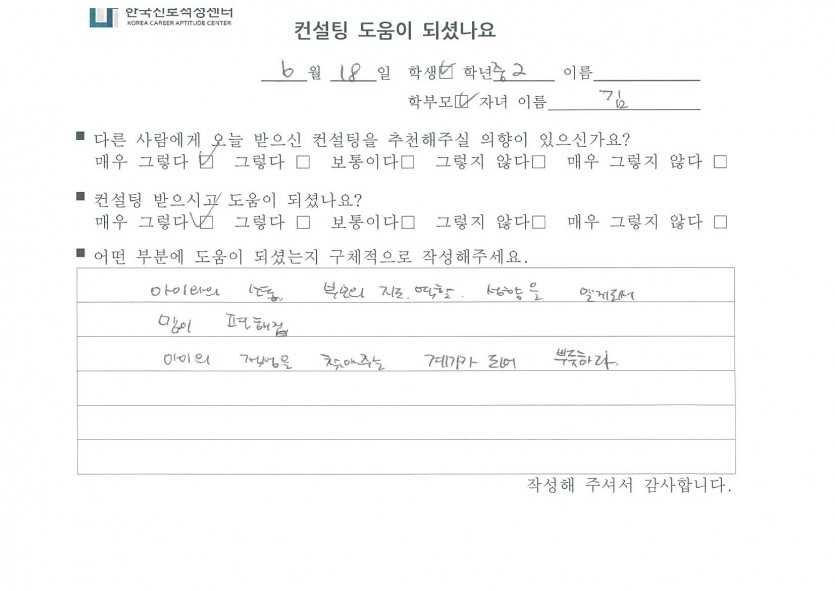 한국진로적성센터
KOREA CAREER APTITUDE CENTER
컨설팅 도움이 되셨나요
6 월 18 일 학생☑ 학년 중2 이름
학부모☑ 자녀 이름 김
■ 다른 사람에게 오늘 받으신 컨설팅을 추천해주실 의향이 있으신가요?
매우 그렇다 ☑ 그렇다 □ 보통이다□ 그렇지 않다□ 매우 그렇지 않다 □
■ 컨설팅 받으시고 도움이 되셨나요?
매우 그렇다☑ 그렇다 □ 보통이다□ 그렇지 않다□ 매우 그렇지 않다 □
■ 어떤 부분에 도움이 되셨는지 구체적으로 작성해주세요.
아이와의 부모의 지도.역할. 성향을 알게되서
맘이 편해짐
아이의 적성을 찾아주는 계기가 되어 뿌듯하다.
작성해 주셔서 감사합니다.